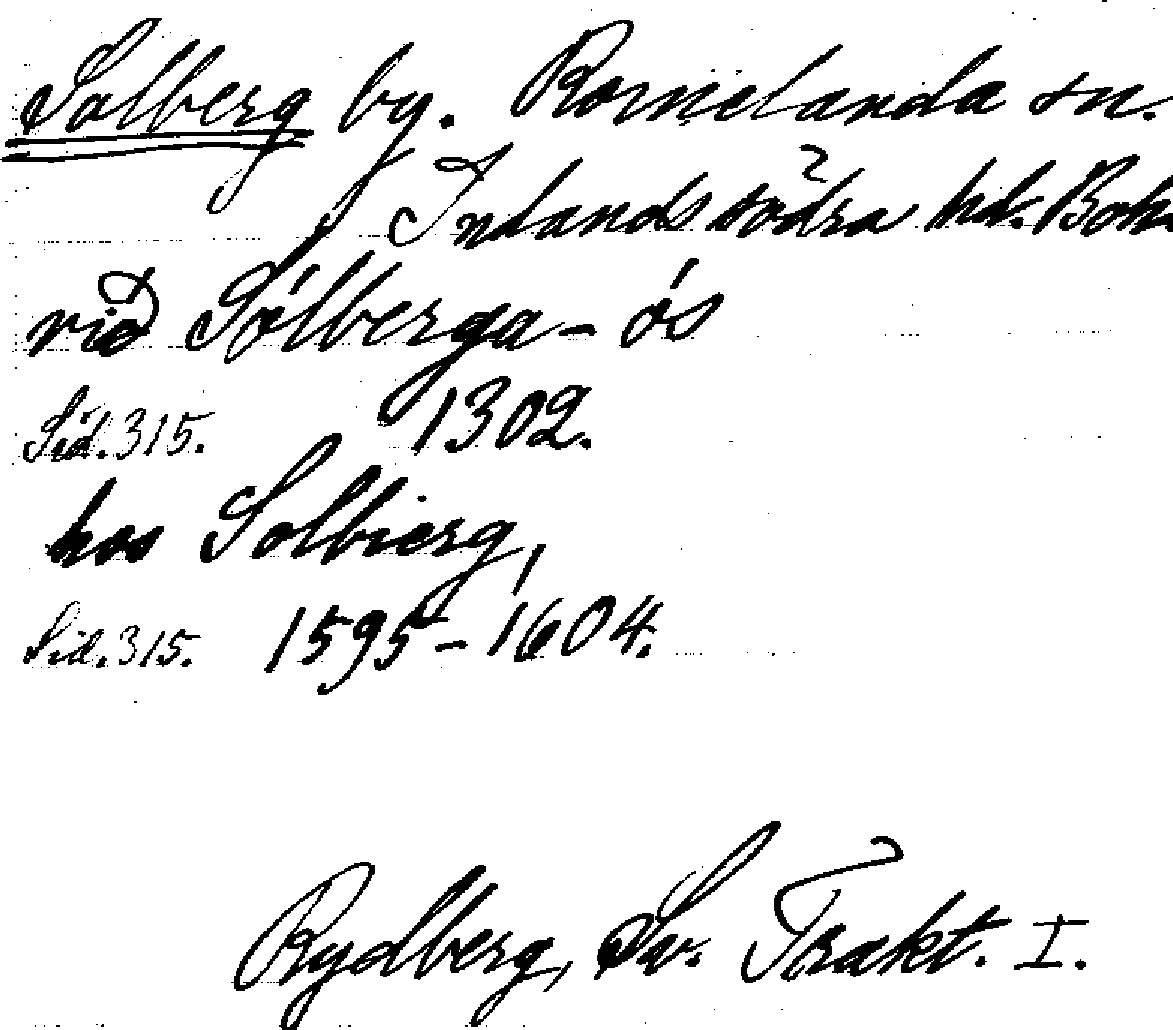 Solberg by. Romelanda sn.
Inlands södra hd. Boh
við Sólberga-ós
Sid. 315. 1302.
hos Solbierg,
Sid. 315. 1595-1604.
Rydberg, Sv. Trakt. I.